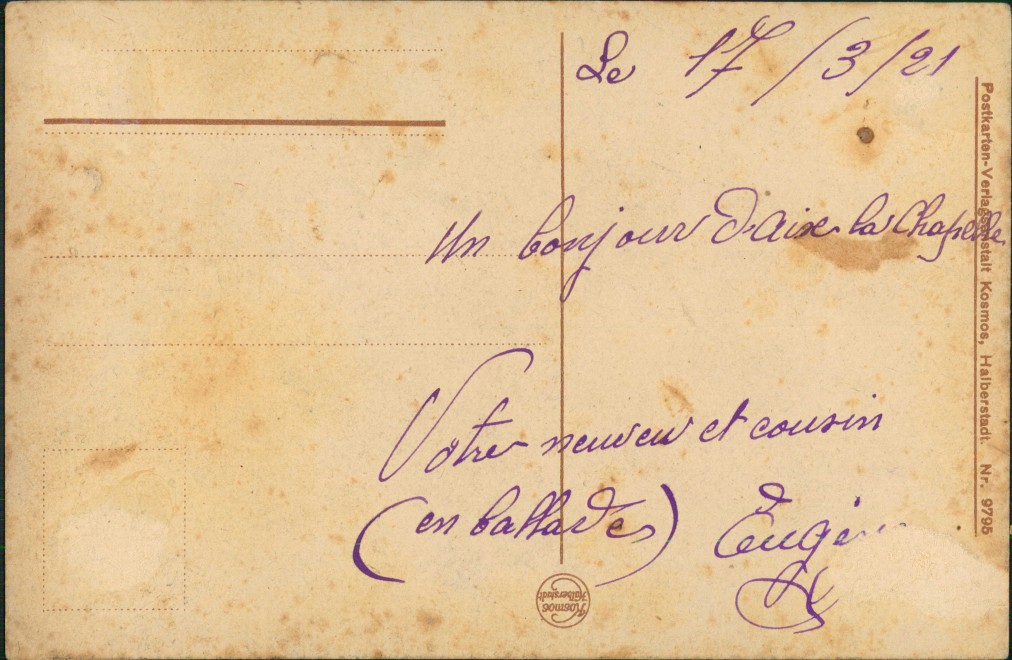 Le 17/3/21
Un bonjour d'aix la Chapelle
Votre neuveu et cousin
(en ballade)
Eugène
Postkarten-Verlagsanstalt Kosmos, Halberstadt. Nr. 9795
Kosmos
Halberstadt